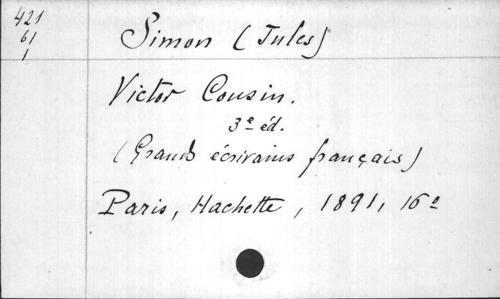 421
61
1
Simon (Jules)
Victor Cousin.
3e éd.
(Grands écrivains français)
Paris, Hachette, 1891, 16o